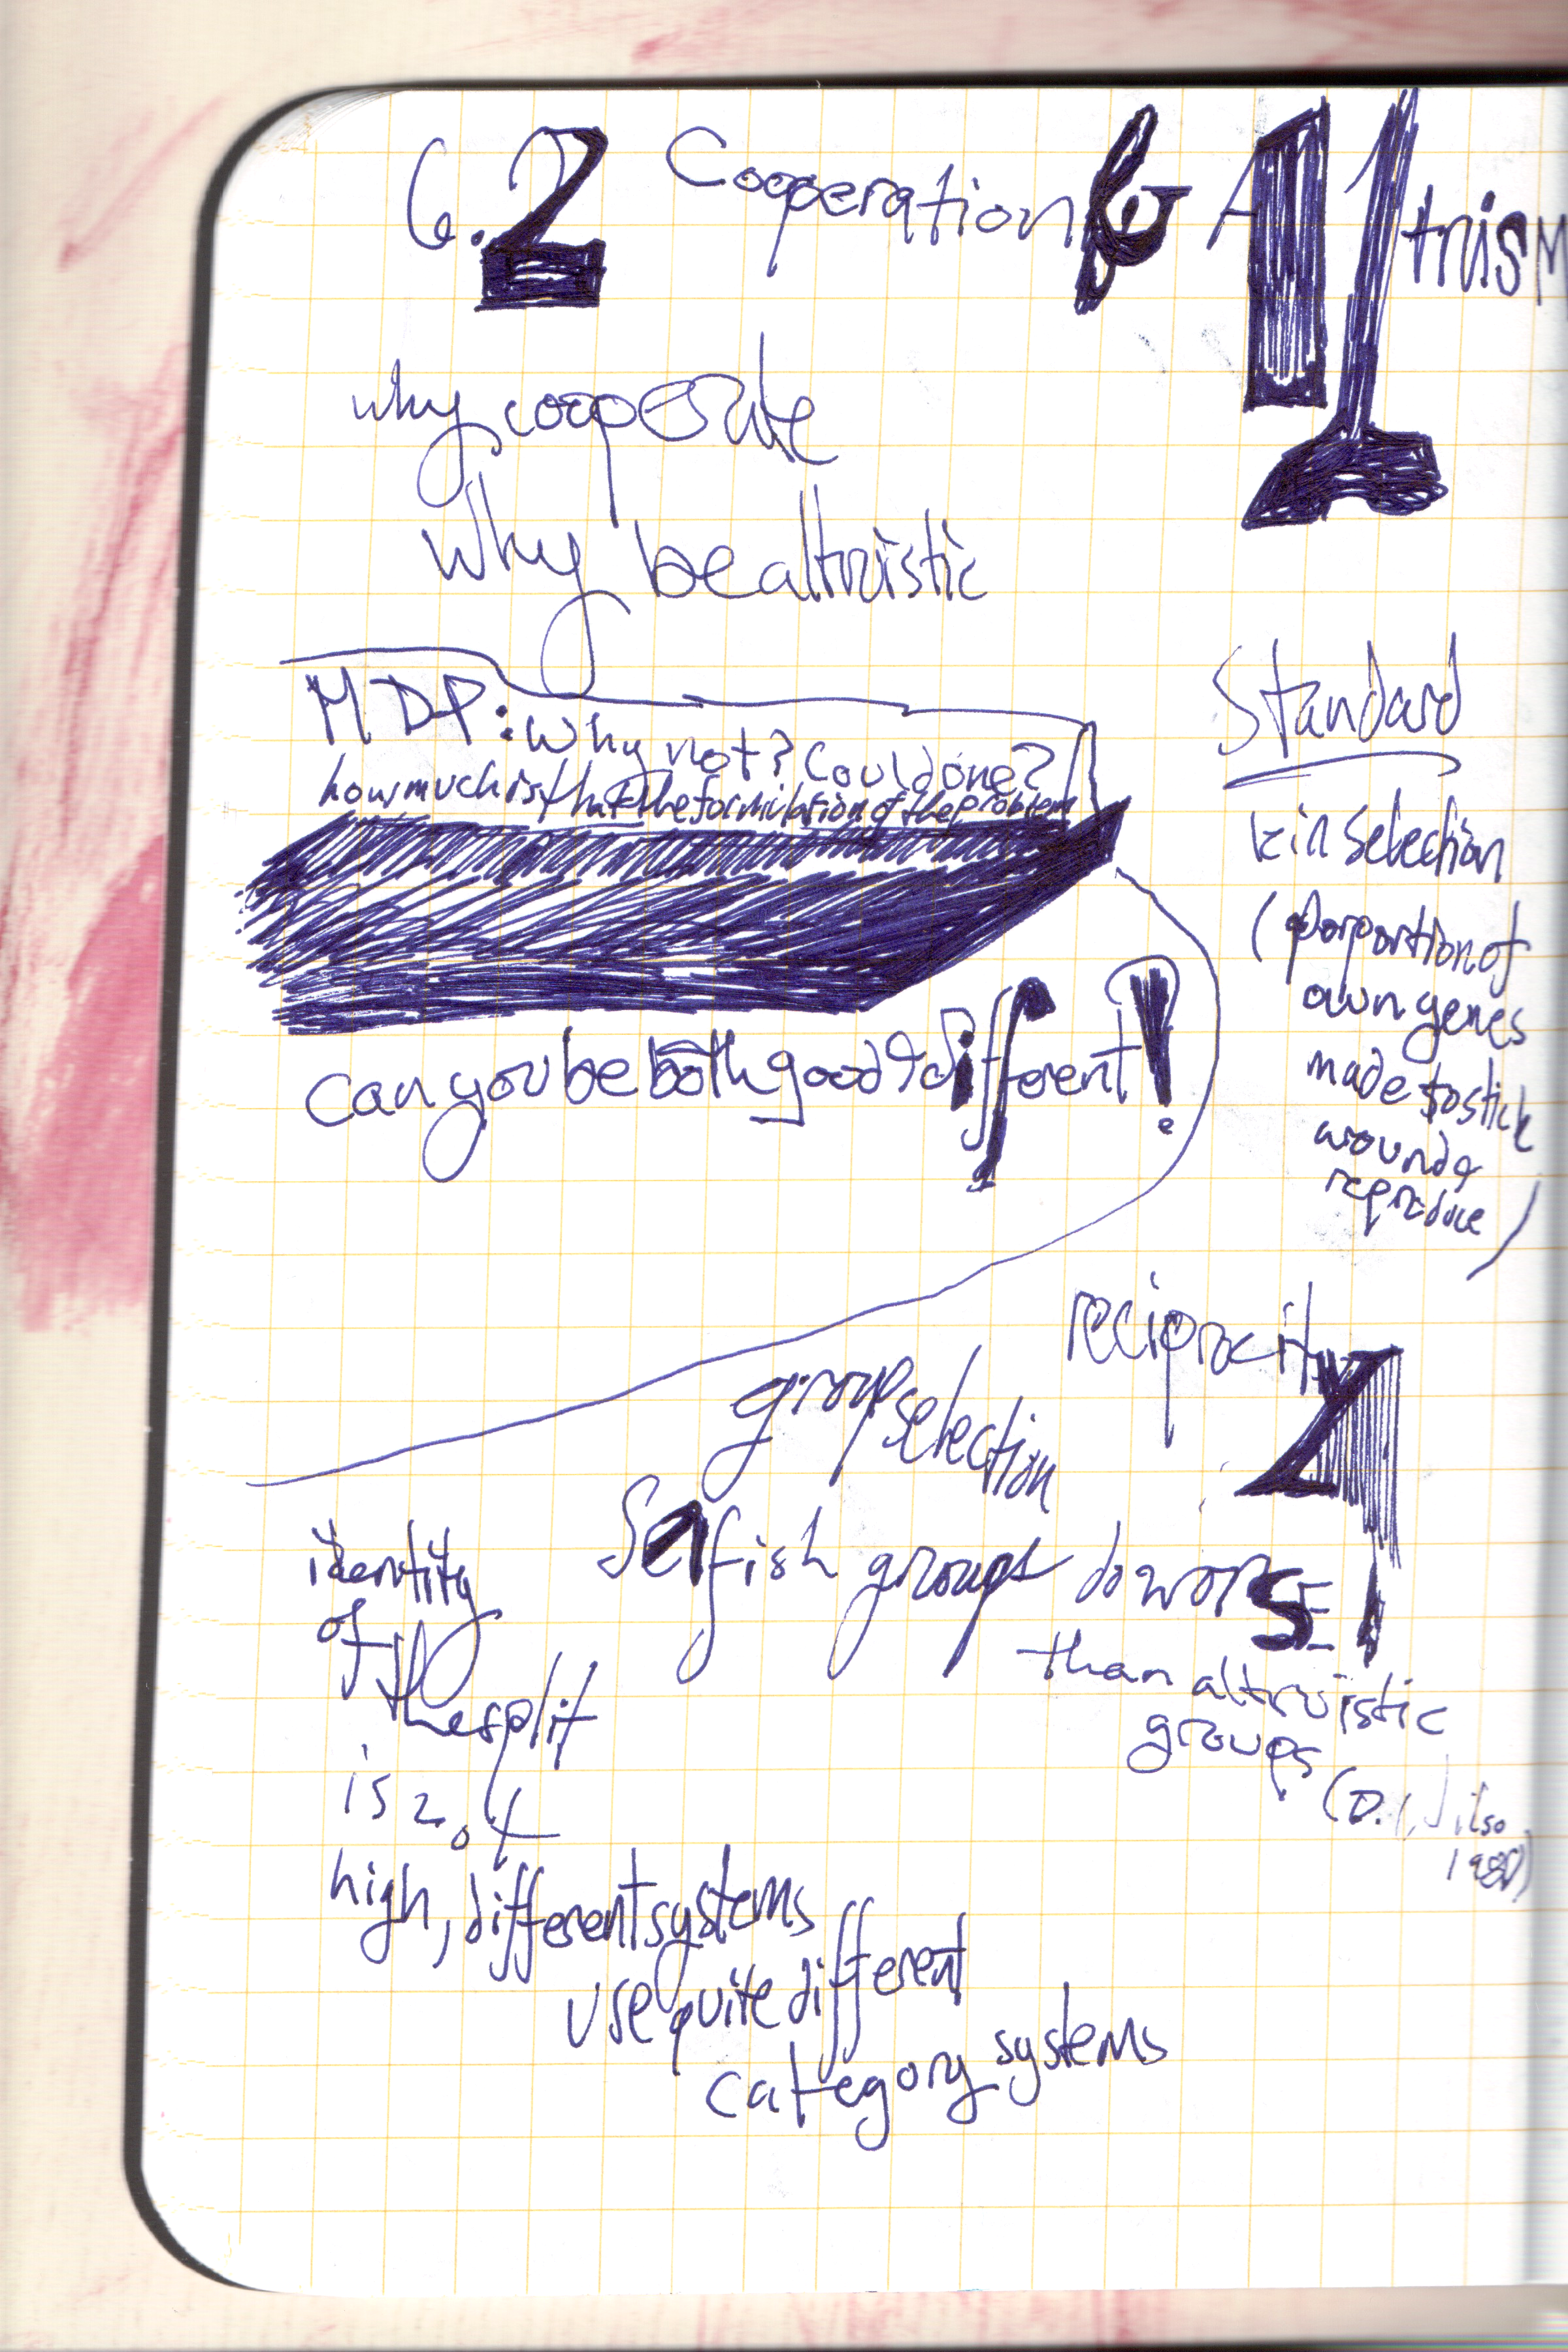 6.2 Cooperation & Altruism
why cooperate
why be altruistic
MDP: Why not? Could one?
how much is that the formulation of the problem
can you be both good & different!
Standard
kin selection
(porportion of
own genes
made to stick
around &
reproduce)
reciprocity
group selection
Selfish groups do worse
than altruistic
groups
(D. Wilso
1980)
identity
of
the split
is 2.4
high, different systems
use quite different
category systems